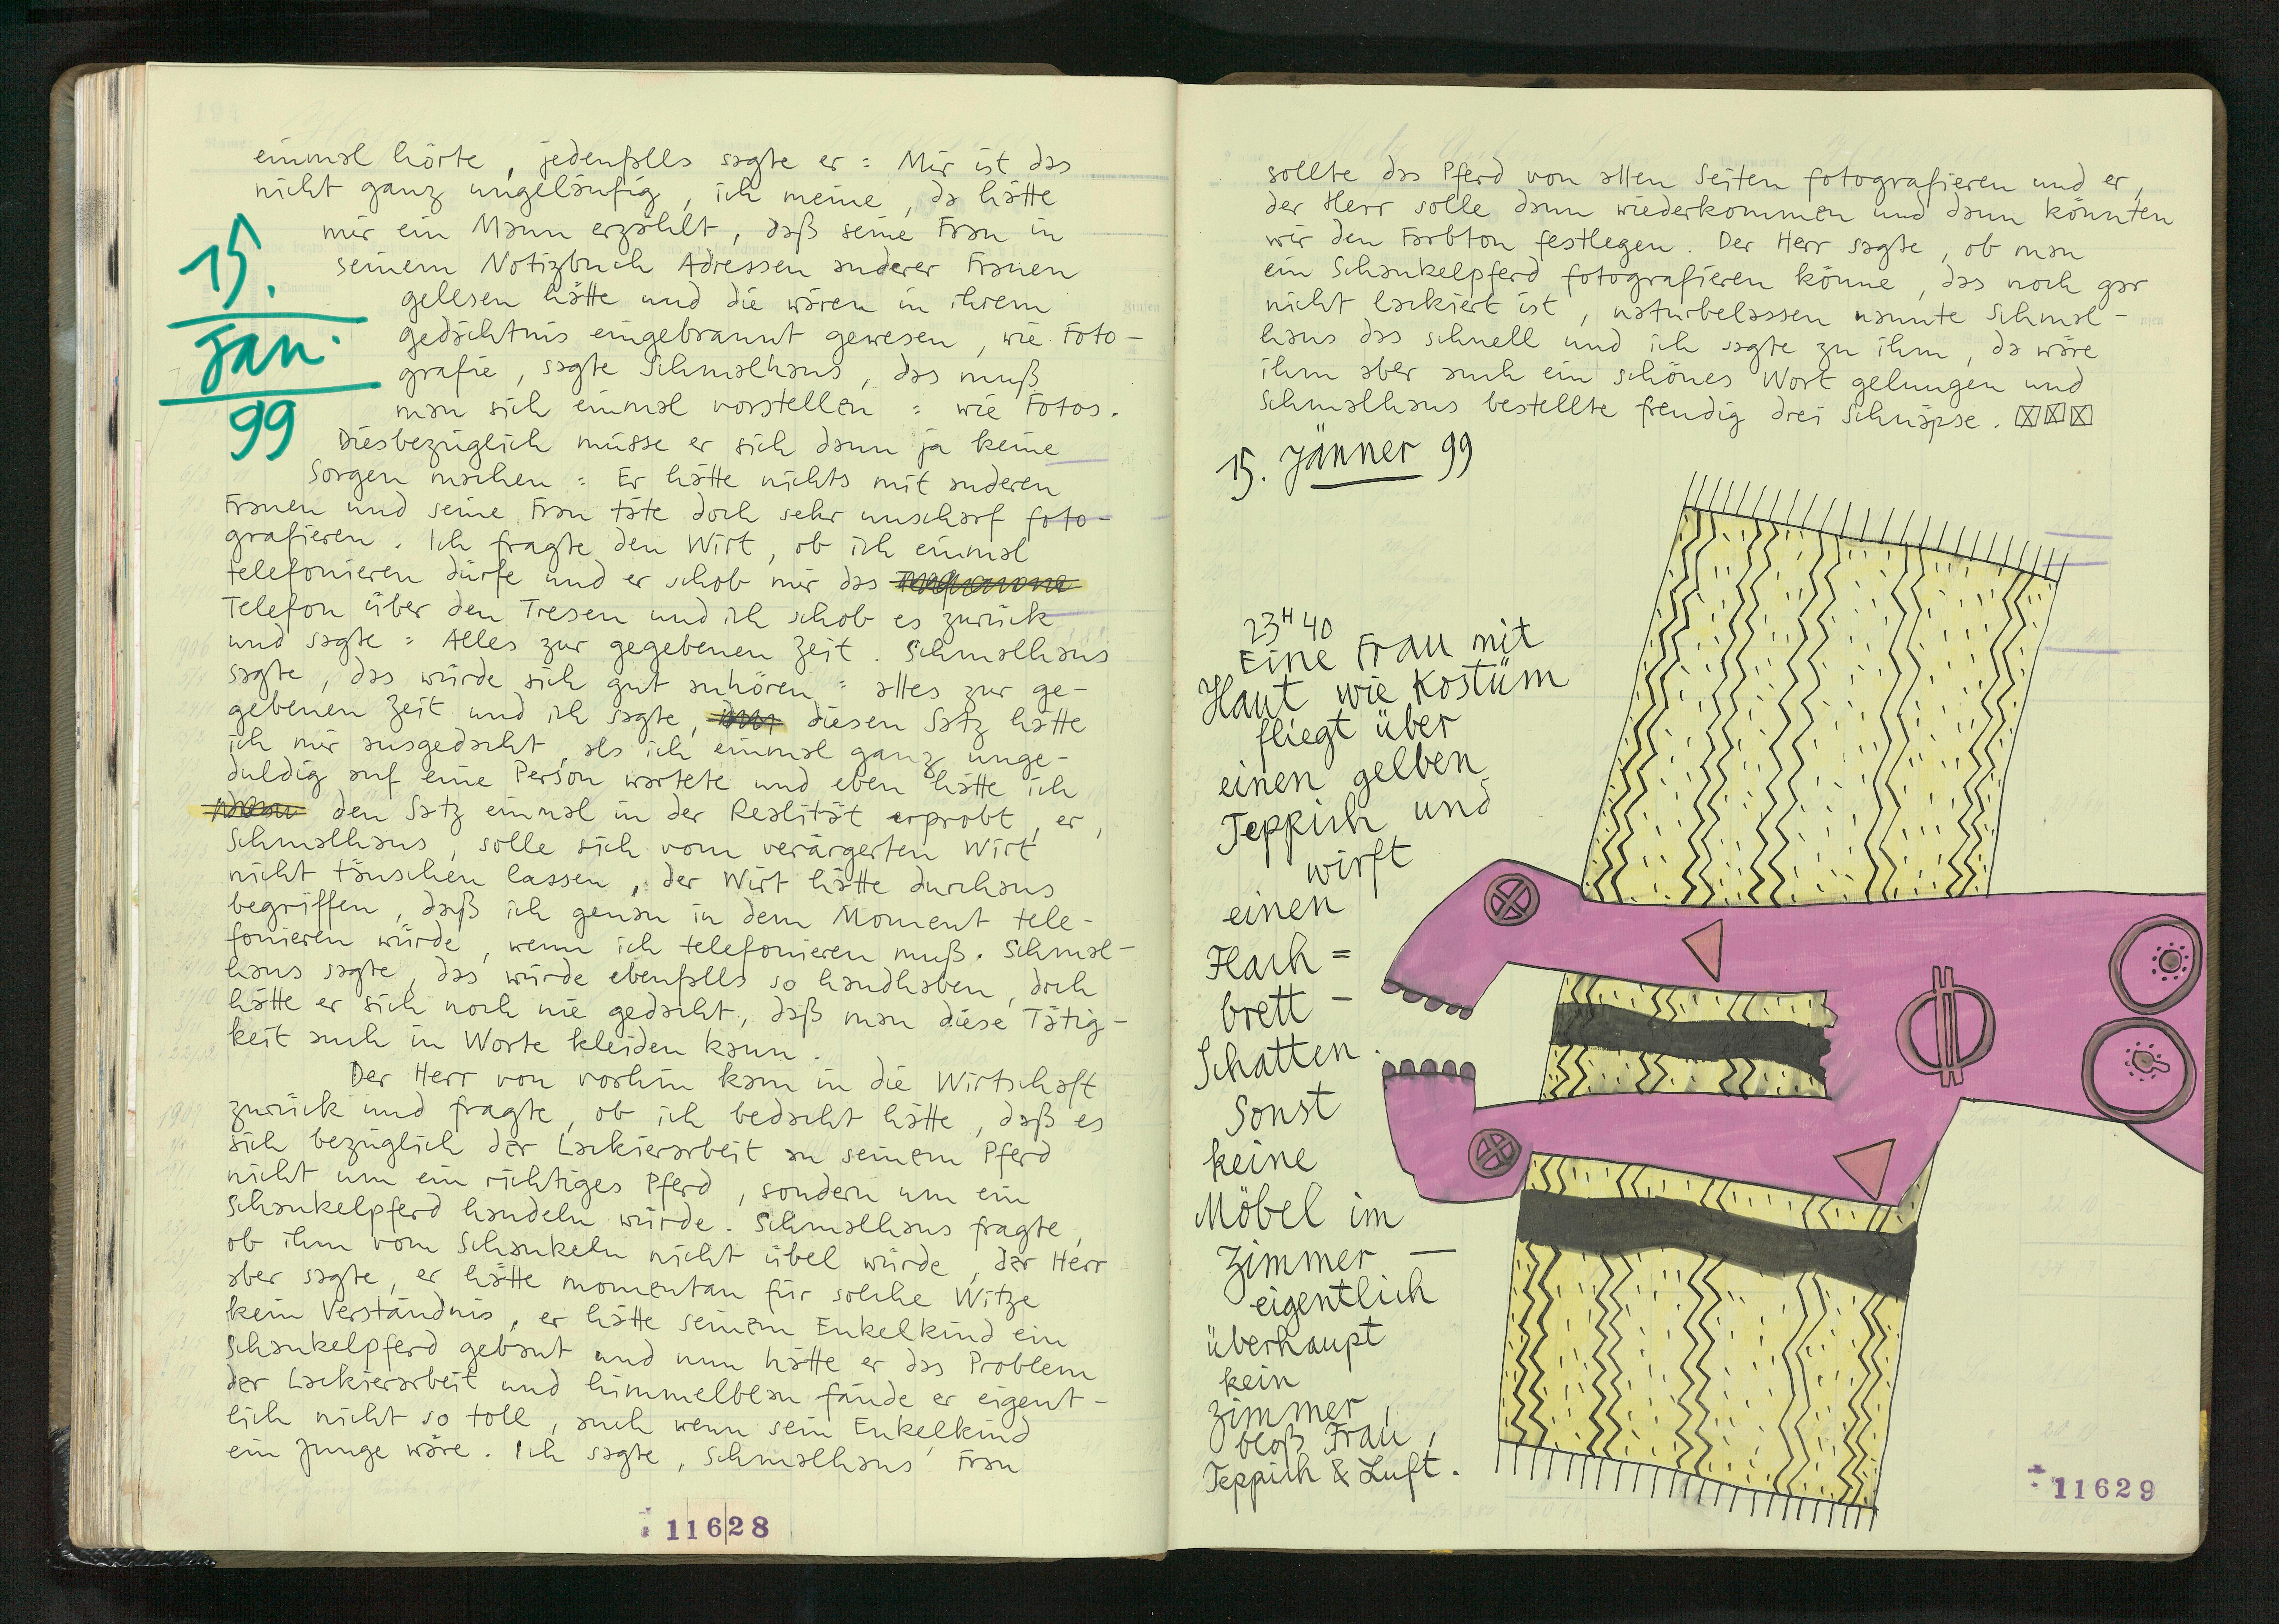 einmal hörte, jedenfalls sagte er: Mir ist das
nicht ganz ungeläufig, ich meine, da hätte
mir ein Mann erzählt, daß seine Frau in
seinem Notizbuch Adressen anderer Frauen
gelesen hätte und die wären in ihrem
gedächtnis eingebrannt gewesen, wie Foto-
grafie, sagte Schmalhaus, das muß
man sich einmal vorstellen: wie Fotos.
15.
Jan.
99
Diesbezüglich müsse er sich dann ja keine
Sorgen machen: Er hätte nichts mit anderen
Frauen und seine Frau täte doch sehr unscharf foto-
grafieren. Ich fragte den Wirt, ob ich einmal
telefonieren dürfe und er schob mir das
Telefon über den Tresen und ich schob es zurück
und sagte: Alles zur gegebenen Zeit. Schmalhaus
sagte, das würde sich gut anhören: alles zur ge-
gebenen Zeit und ich sagte, diesen Satz hätte
ich mir ausgedacht, als ich einmal ganz unge-
duldig auf eine Person wartete und eben hätte ich
den Satz einmal in der Realität erprobt, er,
Schmalhaus, solle sich vom verärgerten Wirt
nicht täuschen lassen, der Wirt hätte durchaus
begriffen, daß ich genau in dem Moment tele-
fonieren würde, wenn ich telefonieren muß. Schmal-
haus sagte, das würde ebenfalls so handhaben, doch
hätte er sich noch nie gedacht, daß man diese Tätig-
keit auch in Worte kleiden kann.
Der Herr von vorhin kam in die Wirtschaft
zurück und fragte, ob ich bedacht hätte, daß es
sich bezüglich der Lackierarbeit an seinem Pferd
nicht um ein richtiges Pferd, sondern um ein
Schaukelpferd handeln würde. Schmalhaus fragte,
ob ihm vom Schaukeln nicht übel würde, der Herr
aber sagte, er hätte momentan für solche Witze
kein Verständnis, er hätte seinem Enkelkind ein
Schaukelpferd gebaut und nun hätte er das Problem
der Lackierarbeit und himmelblau fände er eigent-
lich nicht so toll, auch wenn sein Enkelkind
ein Junge wäre. Ich sagte, Schmalhaus' Frau
11628
sollte das Pferd von allen Seiten fotografieren und er,
der Herr solle dann wiederkommen und dann könnten
wir den Farbton festlegen. Der Herr sagte, ob man
ein Schaukelpferd fotografieren könne, das noch gar
nicht lackiert ist, naturbelassen nannte Schmal-
haus das schnell und ich sagte zu ihm, da wäre
ihm aber auch ein schönes Wort gelungen und
Schmalhaus bestellte freudig drei Schnäpse.
15. Jänner 99
23H40
Eine Frau mit
Haut wie Kostüm
fliegt über
einen gelben
Teppich und
wirft
einen
Flach=
brett-
Schatten.
Sonst
keine
Möbel im
Zimmer —
eigentlich
überhaupt
kein
Zimmer,
bloß Frau,
Teppich & Luft.
11629